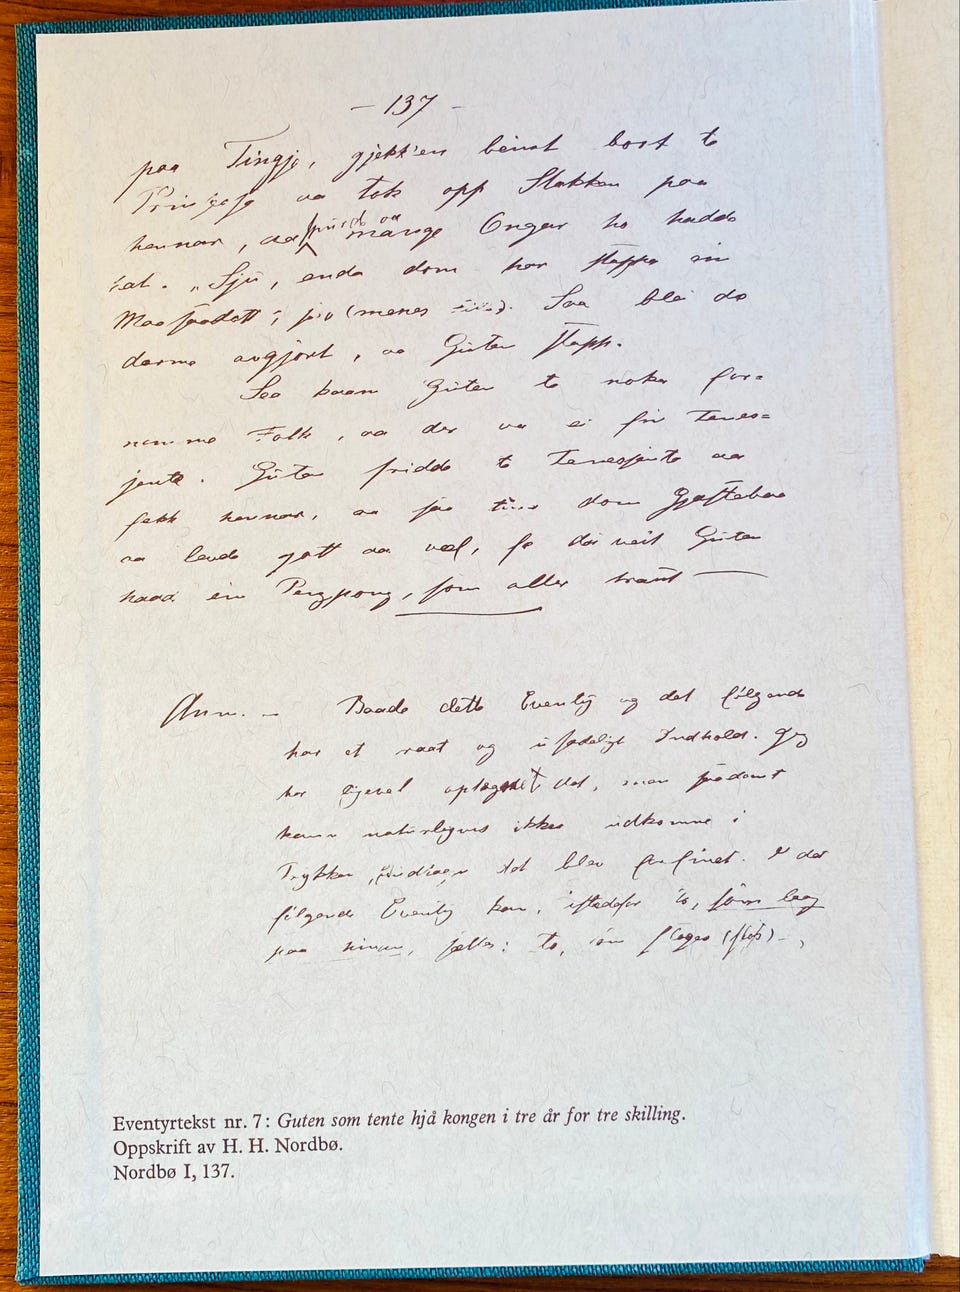 — 137 —
paa Tingje, gjekk'en beint bort te
Prinsessa aa tok opp Stakken paa
hennar, aa spurde aa mange Ongar ho hadde
"Sju, enda dom har stappa in
(menes). Saa blei de
derme avgjort, aa Guten slapp.
Saa kaam Guten te noken for=
nemme Folk, aa der va ei fin Tenes=
jente. Guten fridde te Tenesjenta aa
fekk hennar, aa saa dom Gjestebaa
aa levde gott aa vel, fe Guten
hadd ein Pengpong, som aller traut —
Anm. — Baade dette Eventyr og det følgende
har et raat og usædeligt Indhold. Jeg
har ligevel optegnet det, men saadant
kann naturligvis ikke udkomme i
Trykken, det blev forfinet. I det
følgende Eventyr kan, istedefor
paa
Eventyrtekst nr. 7: Guten som tente hjå kongen i tre år for tre skilling.
Oppskrift av H. H. Nordbø.
Nordbø I, 137.